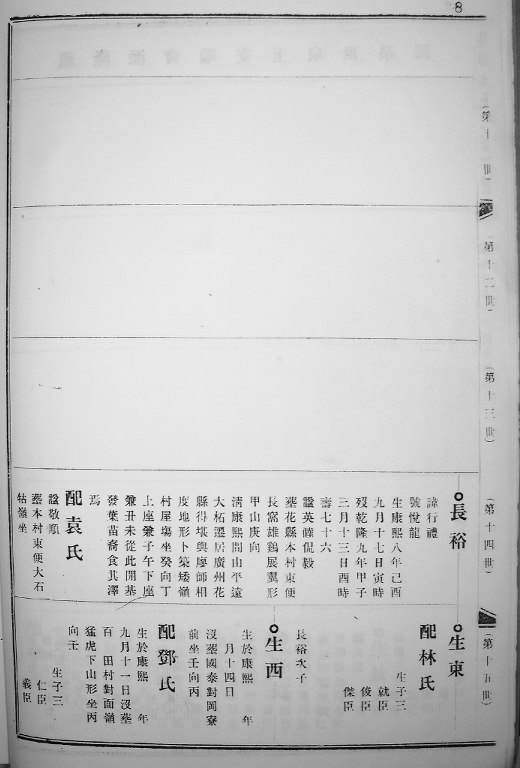 8
(第十一世)
(第十二世)
(第十三世)
(第十四世)
長裕
諱行禮
號悅龍
生康熙八年己酉
九月十七日寅時
歿乾隆九年甲子
三月十三日酉時
壽七十六
諡英鋒侃毅
墓花縣本村東便
長窩雄鷄展翼形
甲山庚向
淸康熙間由平遠
大柘遷居廣州花
縣得堪輿廖師相
度地形卜築矮嶺
村屋塲坐癸向丁
上座兼子午下座
兼丑未從此開基
發葉苗裔食其澤
焉
配袁氏
諡敬順
墓本村東便大石
牯嶺坐
(第十五世)
生東
配林氏
生子三
就臣
俊臣
傑臣
長裕次子
生西
生於康熙 年
月十四日
沒墓國泰對岡寮
前坐壬向丙
配鄧氏
生於康熙 年
九月十一日沒墓
百 田村對面嶺
猛虎下山形坐丙
向壬
生子三
仁臣
義臣